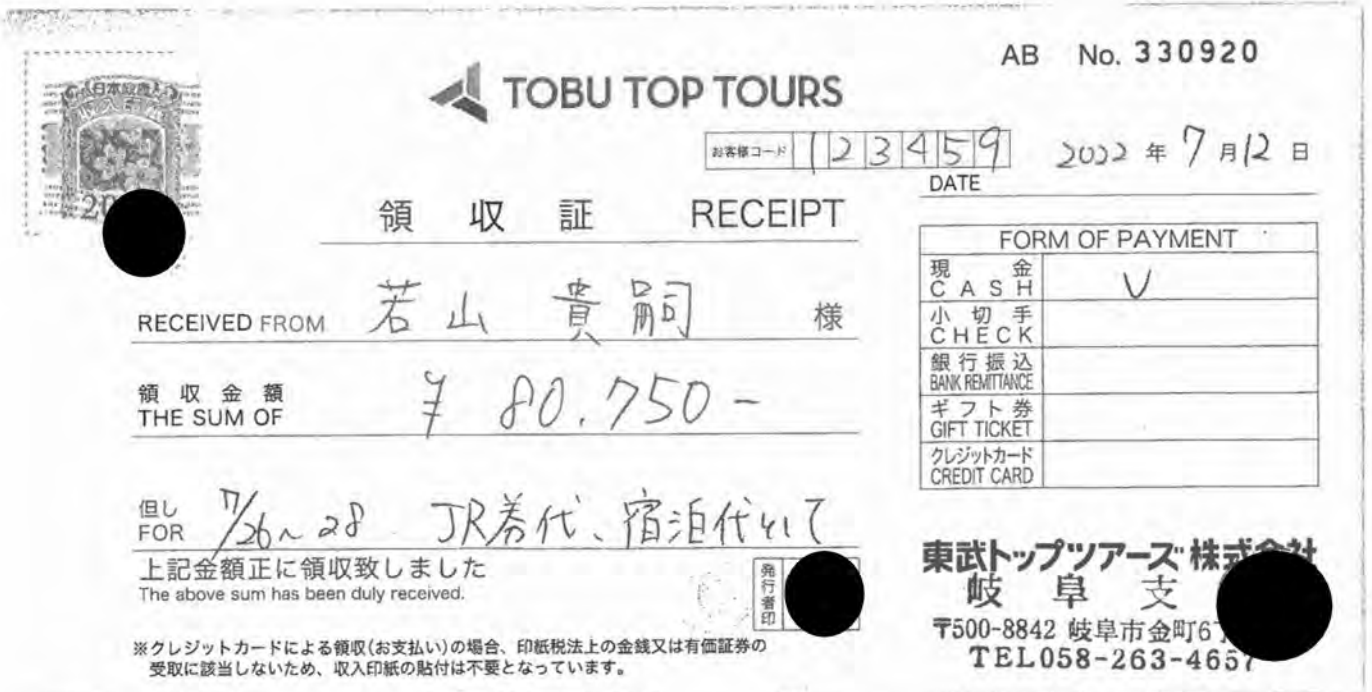 AB No. 330920
日本政府
収入印紙
20
TOBU TOP TOURS
お客様コード 123459
2022 年 7 月 12 日
DATE
領 収 証 RECEIPT
RECEIVED FROM 若山 貴嗣 様
領 収 金 額
THE SUM OF ¥ 80,750-
但し
FOR 7/26~28 JR券代、宿泊代として
上記金額正に領収致しました
The above sum has been duly received.
発行者印
※クレジットカードによる領収(お支払い)の場合、印紙税法上の金銭又は有価証券の
受取に該当しないため、収入印紙の貼付は不要となっています。
FORM OF PAYMENT
現 金
CASH V
小 切 手
CHECK
銀 行 振 込
BANK REMITTANCE
ギ フ ト 券
GIFT TICKET
クレジットカード
CREDIT CARD
東武トップツアーズ株式会社
岐 阜 支
〒500-8842 岐阜市金町6丁
TEL058-263-4657